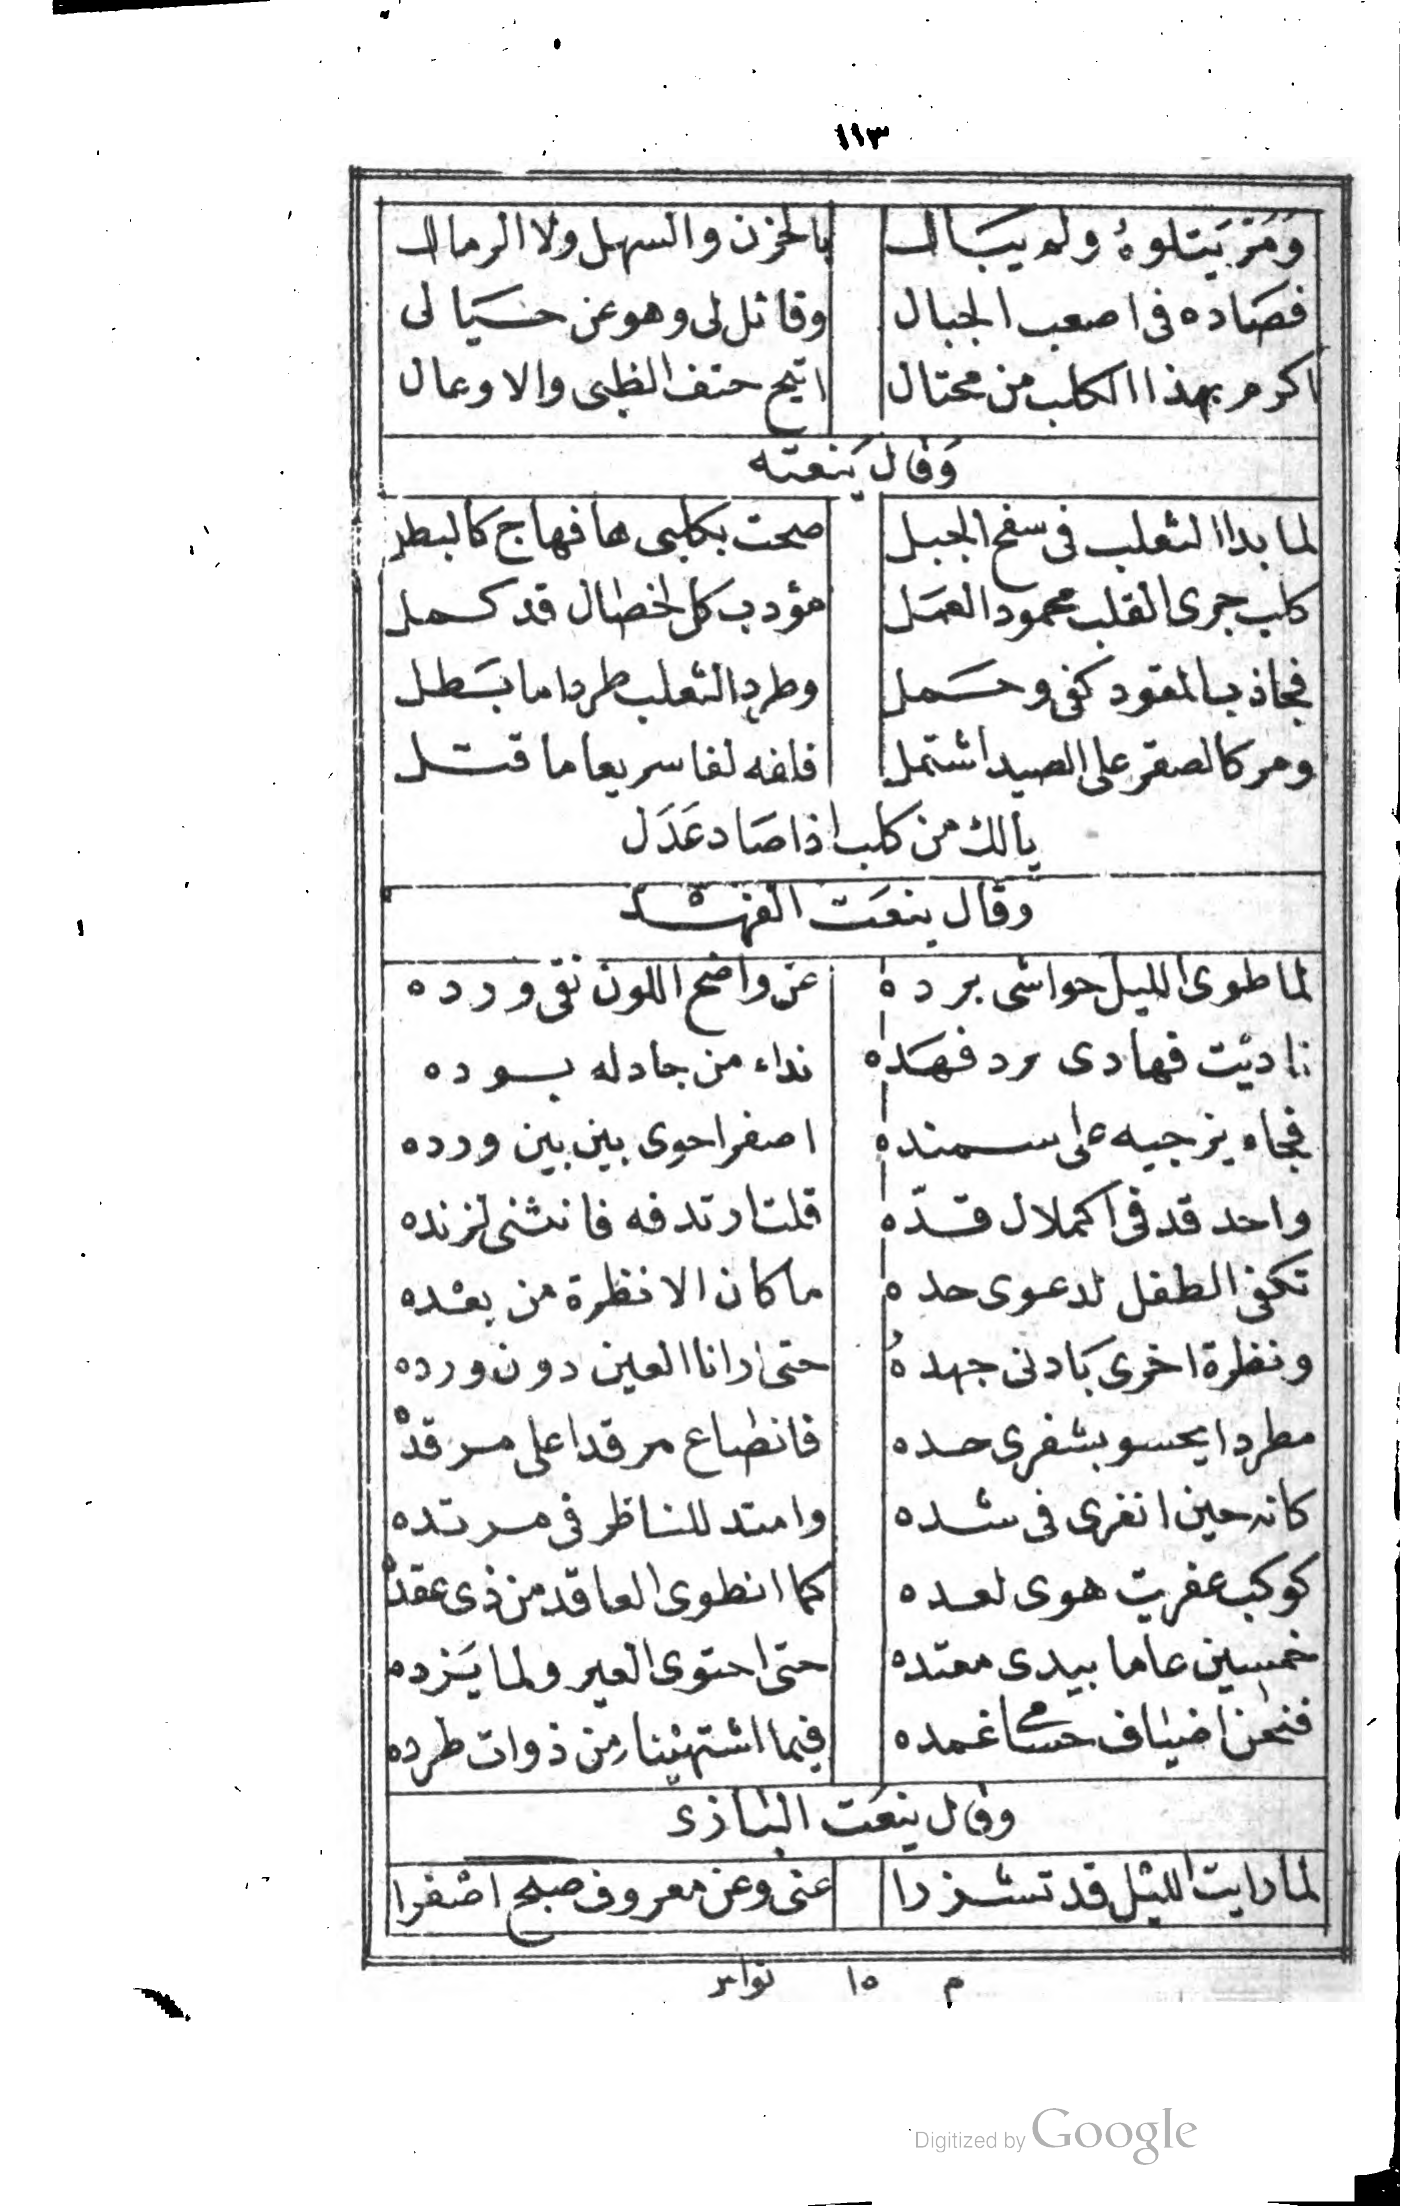 ١١٣
وَمَرّ يَتلوهُ ولم يبَال بالحزن والسهل ولا الرمال
فصَاده فى اصعب الجبال وقائل لى وهو عن حيَالى
اكرم بهذا الكلب من محتال اتيح حتف الظبى والاوعال
وَقال يَنعته
لما بدا الثعلب فى سفح الجبل صحت بكلبى ها فهاج كالبطل
كلب جرى القلب محمود العمَل مؤدب كل الخصال قد كمل
فجاذب المقود كفى وحمَل وطرد الثعلب طردا ما بَطل
ومر كالصقر على الصيد اشتمل فلفه لفا سريعا ما قتل
يالك من كلب اذا صَاد عَدَل
وقال ينعَت الفهْد
لما طوى الليل حواشى برده عن واضح اللون نقى ورده
ناديْت فهادى برد فهَده نداء من جاد له بوده
فجاء يزجيه على سمنده اصفر احوى بين بين ورده
واحد قد فى اكملال قدّه قلت ارتدفه فانثنى لزنده
تكفى الطفل لدعوى حده ما كان الا نظرة من بعْده
ونظرة اخرى بَادنى جهدهُ حتى ارانا العين دون ورده
مطردا يحسو بشفرى حده فانصاع مرقدا على مرقده
كانه حين انفرى فى شده وامتد للناظر فى مرتده
كوكب عفريت هوى لعده كما انطوى العاقد من ذى عقده
خمسين عاما بيدى معتده حتى احتوى العير ولما يَزده
فنحن اضياف حسامى غمده فيما اشتهيْنا من ذوات طرده
وقال ينعَت البازى
لما رايت الليْل قد تشزرا عنى وعن معروف صبح اسْفرا
م ١٥ نواس
Digitized by Google